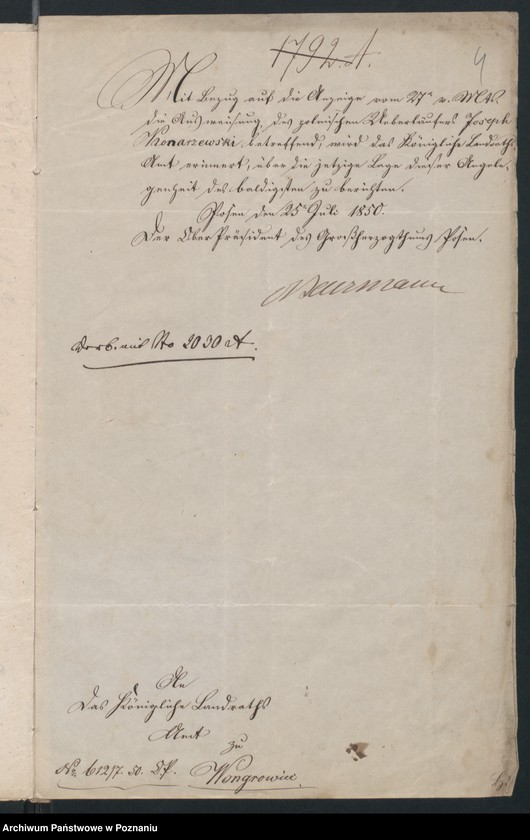 1792. A.
4
Mit Bezug auf die Anzeige vom 27n v. Mts.
die Ausweisung des polnischen Ueberläufers Joseph
Konarzewski betreffend, wird das Königliche Landraths-
Amt erinnert, über die jetzige Lage dieser Angele-
genheit des baldigsten zu berichten.
Posen den 25n Juli 1850.
Der Ober Präsident des Großherzogthums Posen.
Beurmann
mit No 2030 A.
An
Das Königliche Landraths
Amt
zu
No 612/7. 50. O.P. Wongrowiec
Archiwum Państwowe w Poznaniu